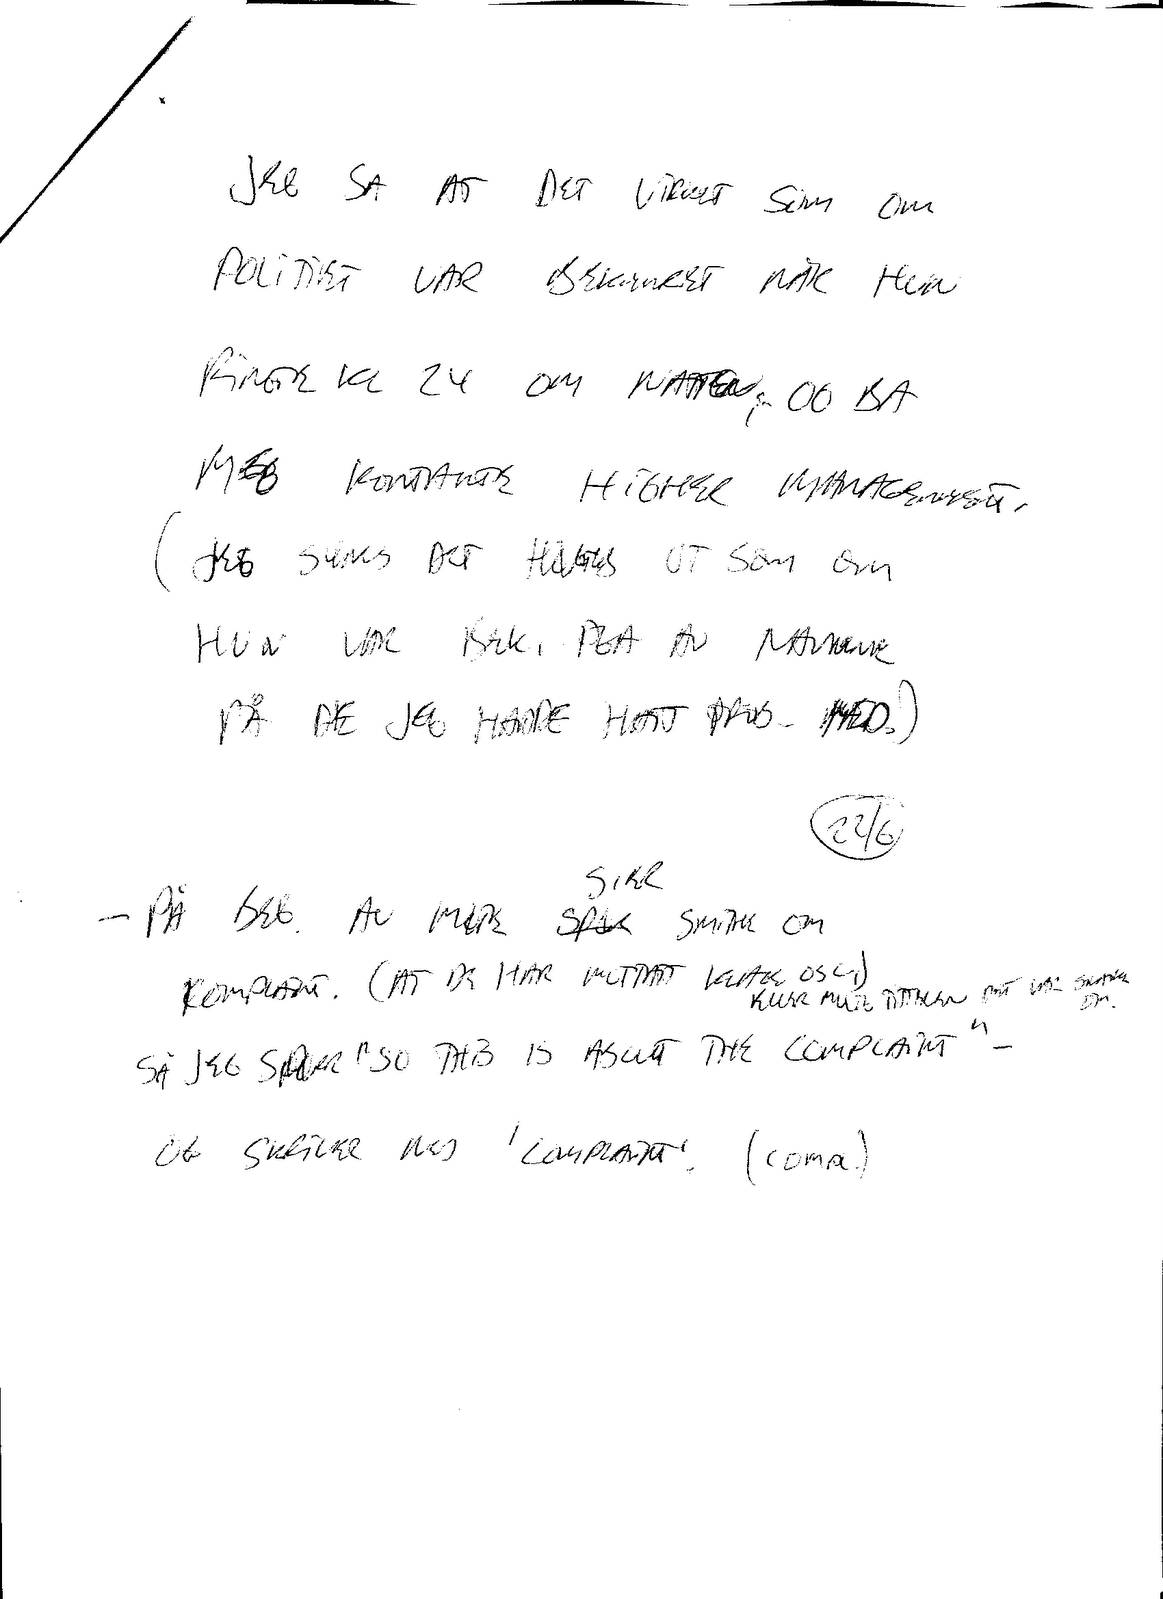 JEG SA AT DET VIRKET SOM OM
POLITIET VAR BEKYMRET NÅR HUN
RINGTE KL 24 OM NATTEN, OG BA
MEG KONTAKTE HIGHER MANAGEMENT.
(JEG SYNES DET HØRTES UT SOM OM
HUN VAR BEK. PGA AV NAVNENE
PÅ DE JEG HADDE HATT PROB. MED.)
22/6
SIER
- PÅ BEG. AV MØTE SMITH OM
KOMPLAINT. (AT DE HAR MOTTATT KLAGE OSV)
ELLER MØTE DET VAR SNAKK
OM.
SÅ JEG SPØR "SO THIS IS ABOUT THE COMPLAINT" -
OG SKRIVER NED 'COMPLAINT'. (COMPL.)